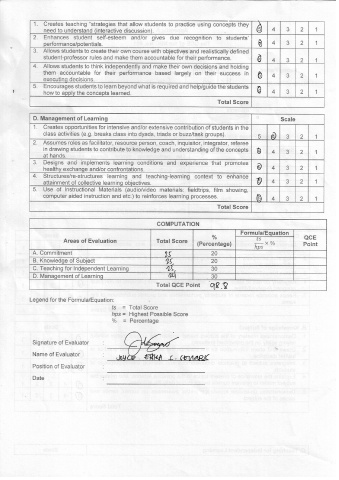 1. Creates teaching strategies that allow students to practice using concepts they 5 4 3 2 1
need to understand (interactive discussion).
2. Enhances student self-esteem and/or gives due recognition to students' 5 4 3 2 1
performance/potentials.
3. Allows students to create their own course with objectives and realistically defined 5 4 3 2 1
student-professor rules and make them accountable for their performance.
4. Allows students to think independently and make their own decisions and holding 5 4 3 2 1
them accountable for their performance based largely on their success in
executing decisions.
5. Encourages students to learn beyond what is required and help/guide the students 5 4 3 2 1
how to apply the concepts learned.
Total Score
D. Management of Learning Scale
1. Creates opportunities for intensive and/or extensive contribution of students in the
class activities (e.g. breaks class into dyads, triads or buzz/task groups). 5 4 3 2 1
2. Assumes roles as facilitator, resource person, coach, inquisitor, integrator, referee 5 4 3 2 1
in drawing students to contribute to knowledge and understanding of the concepts
at hands.
3. Designs and implements learning conditions and experience that promotes 5 4 3 2 1
healthy exchange and/or confrontations.
4. Structures/re-structures learning and teaching-learning context to enhance 5 4 3 2 1
attainment of collective learning objectives.
5. Use of Instructional Materials (audio/video materials, fieldtrips, film showing, 5 4 3 2 1
computer aided instruction and etc.) to reinforces learning processes.
Total Score
COMPUTATION
Areas of Evaluation Total Score % (Percentage) Formula/Equation ts/hps x % QCE Point
A. Commitment 25 20
B. Knowledge of Subject 25 20
C. Teaching for Independent Learning 25 30
D. Management of Learning 24 30
Total QCE Point 98.8
Legend for the Formula/Equation:
ts = Total Score
hps = Highest Possible Score
% = Percentage
Signature of Evaluator :
Name of Evaluator : JOYCE ERIKA
Position of Evaluator :
Date :